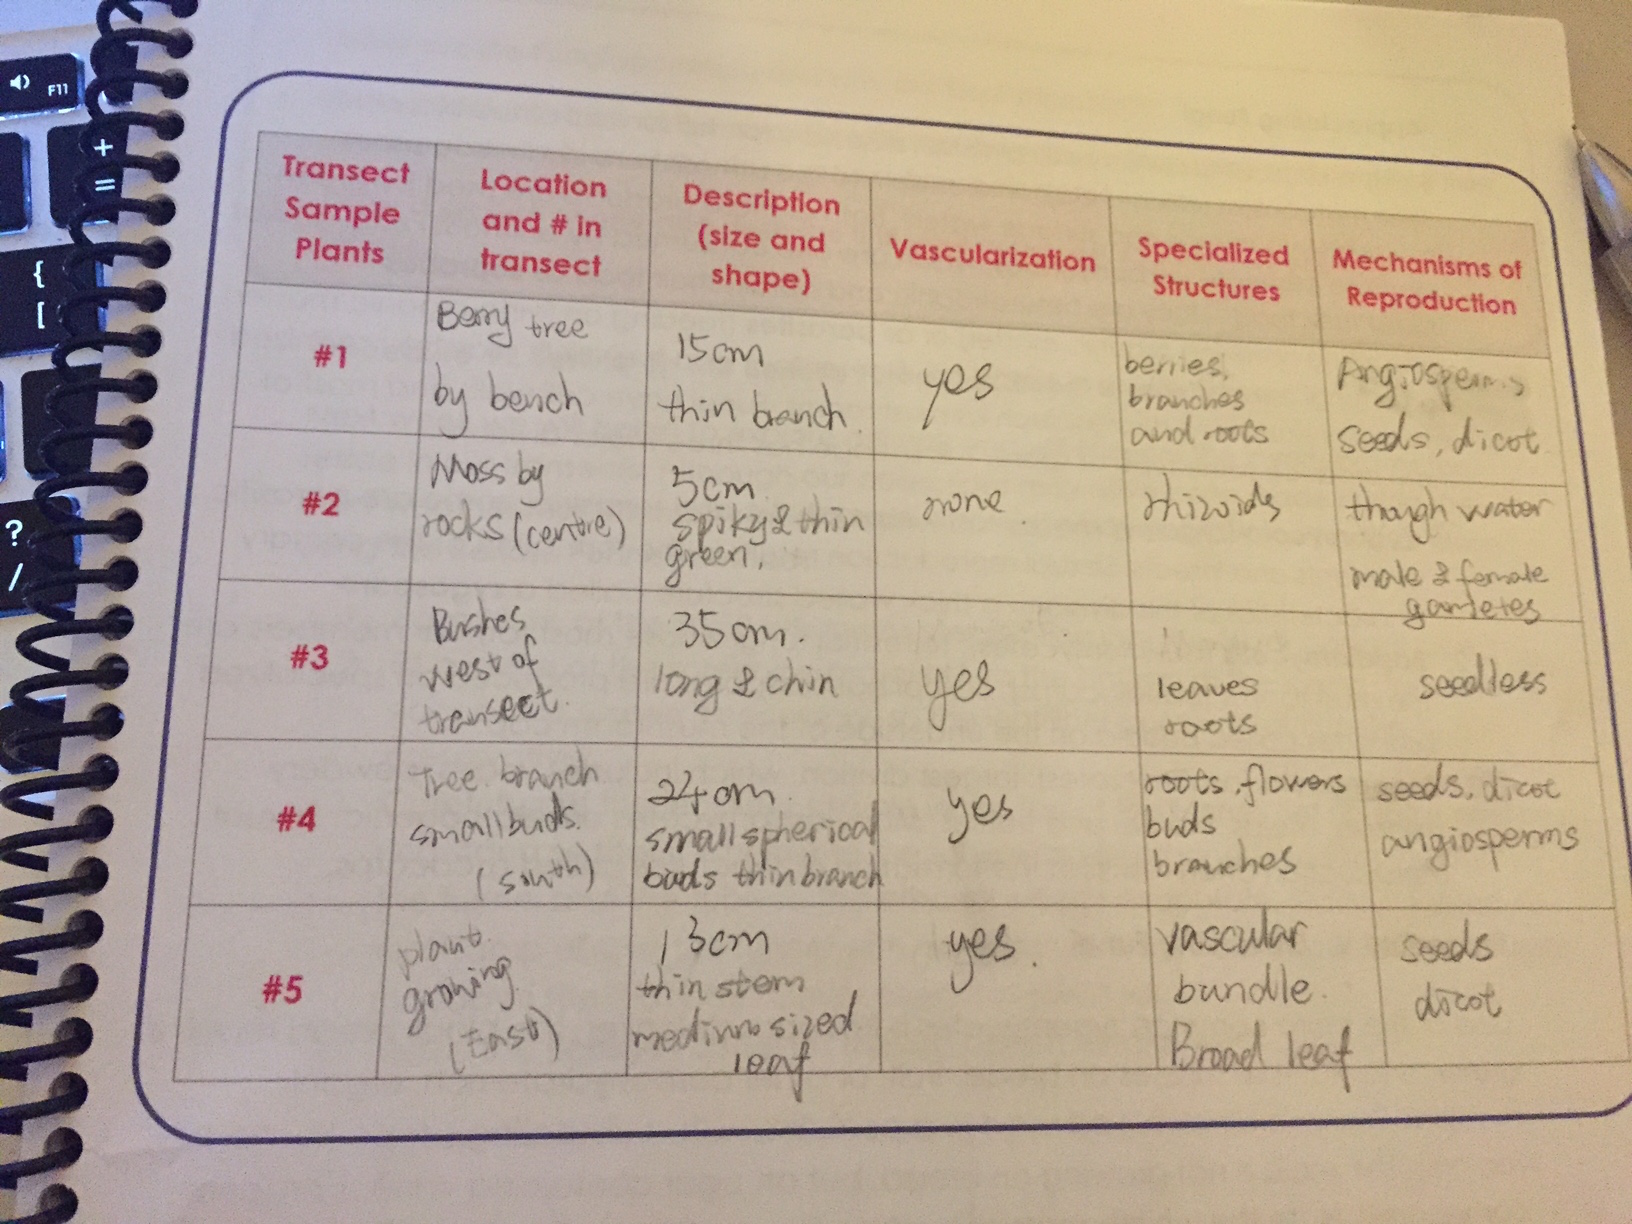 F11
+
=
{
[
?
/
Transect
Sample
Plants
Location
and # in
transect
Description
(size and
shape)
Vascularization
Specialized
Structures
Mechanisms of
Reproduction
#1
Berry tree
by bench
15cm
thin branch.
yes
berries,
branches
and roots
Angiosperms
seeds, dicot
#2
Moss by
rocks (centre)
5cm
spiky & thin
green.
none.
rhizoids
though water
male & female
gametes
#3
Bushes
west of
transect.
35cm.
long & chin
yes
leaves
roots
seedless
#4
Tree branch
small buds.
(south)
24cm.
small spherical
buds thin branch
yes
roots, flowers
buds
branches
seeds, dicot
angiosperms
#5
plant
growing
(East)
13cm
thin stem
medium sized
leaf
yes.
vascular
bundle.
Broad leaf
seeds
dicot